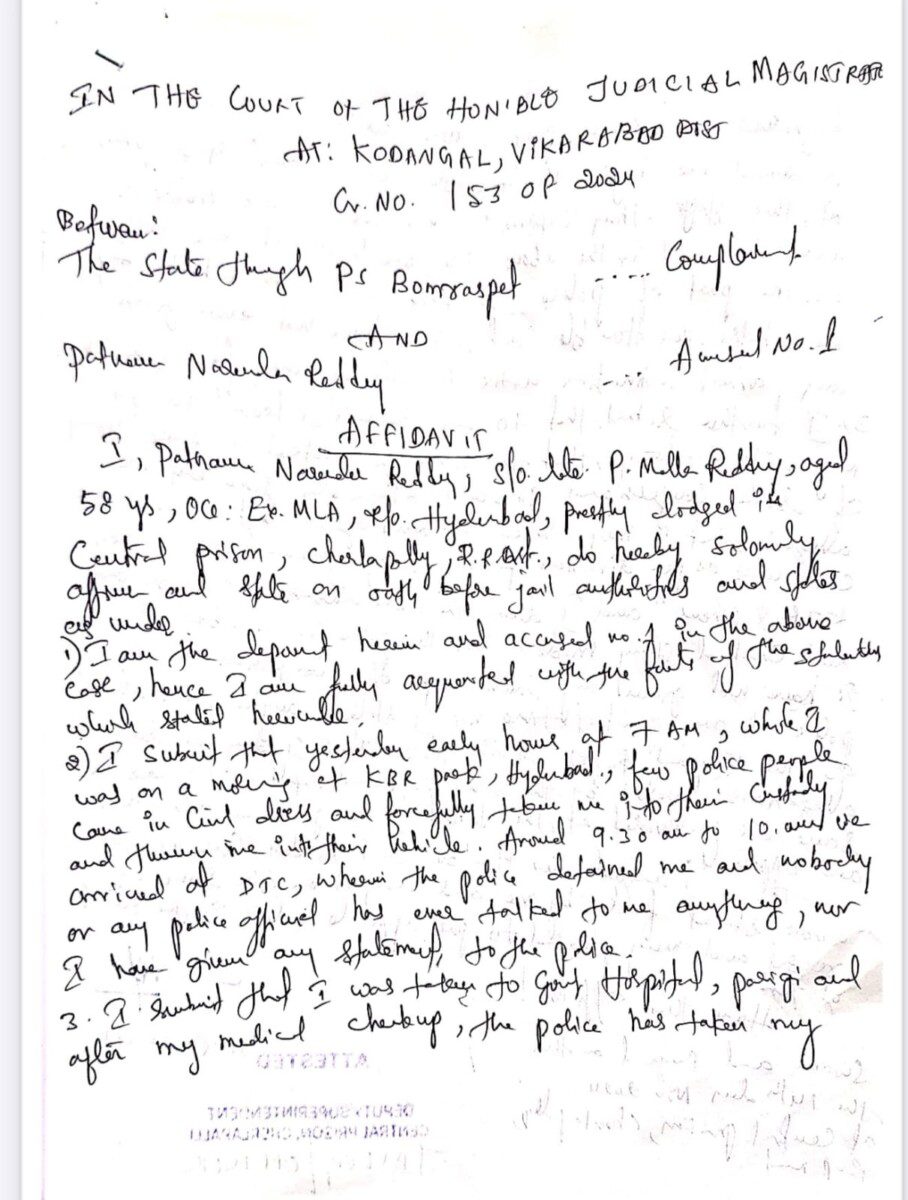 IN THE COURT OF THE HON'BLE JUDICIAL MAGISTRATE
AT: KODANGAL, VIKARABAD DIST
Cr. No. 153 OF 2024
Between:
The State through PS Bomraspet ..... Complainant
AND
Patnam Narender Reddy ..... Accused No. 1
AFFIDAVIT
I, Patnam Narender Reddy, S/o. late P. Malla Reddy, aged
58 ys, Occ: Ex. MLA, R/o. Hyderabad, presently lodged in
Central prison, cherlapally, R.R. Dist., do hereby solemnly
affirm and state on oath before jail authorities and states
as under
1) I am the deponent herein and accused no. 1 in the above
case, hence I am fully acquented with the facts of the
which stated hereunder.
2) I submit that yesterday early hours at 7 AM, while I
was on a at KBR park, Hyderabad., few police people
came in Civil dress and forcefully taken me into their Custody
and thrown me into their Vehicle. Around 9.30 am to 10. am we
arrived at DTC, wherein the police detained me and nobody
or any police official has ever talked to me anything, nor
I have given any statement, to the police.
3. I submit that I was taken to Govt Hospital, parigi and
after my medical checkup, the police has taken my
ATTESTED
DEPUTY SUPERINTENDENT
CENTRAL PRISON, CHERLAPALLI